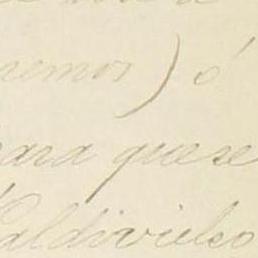 nemos) ó
para que se
Valdivielso